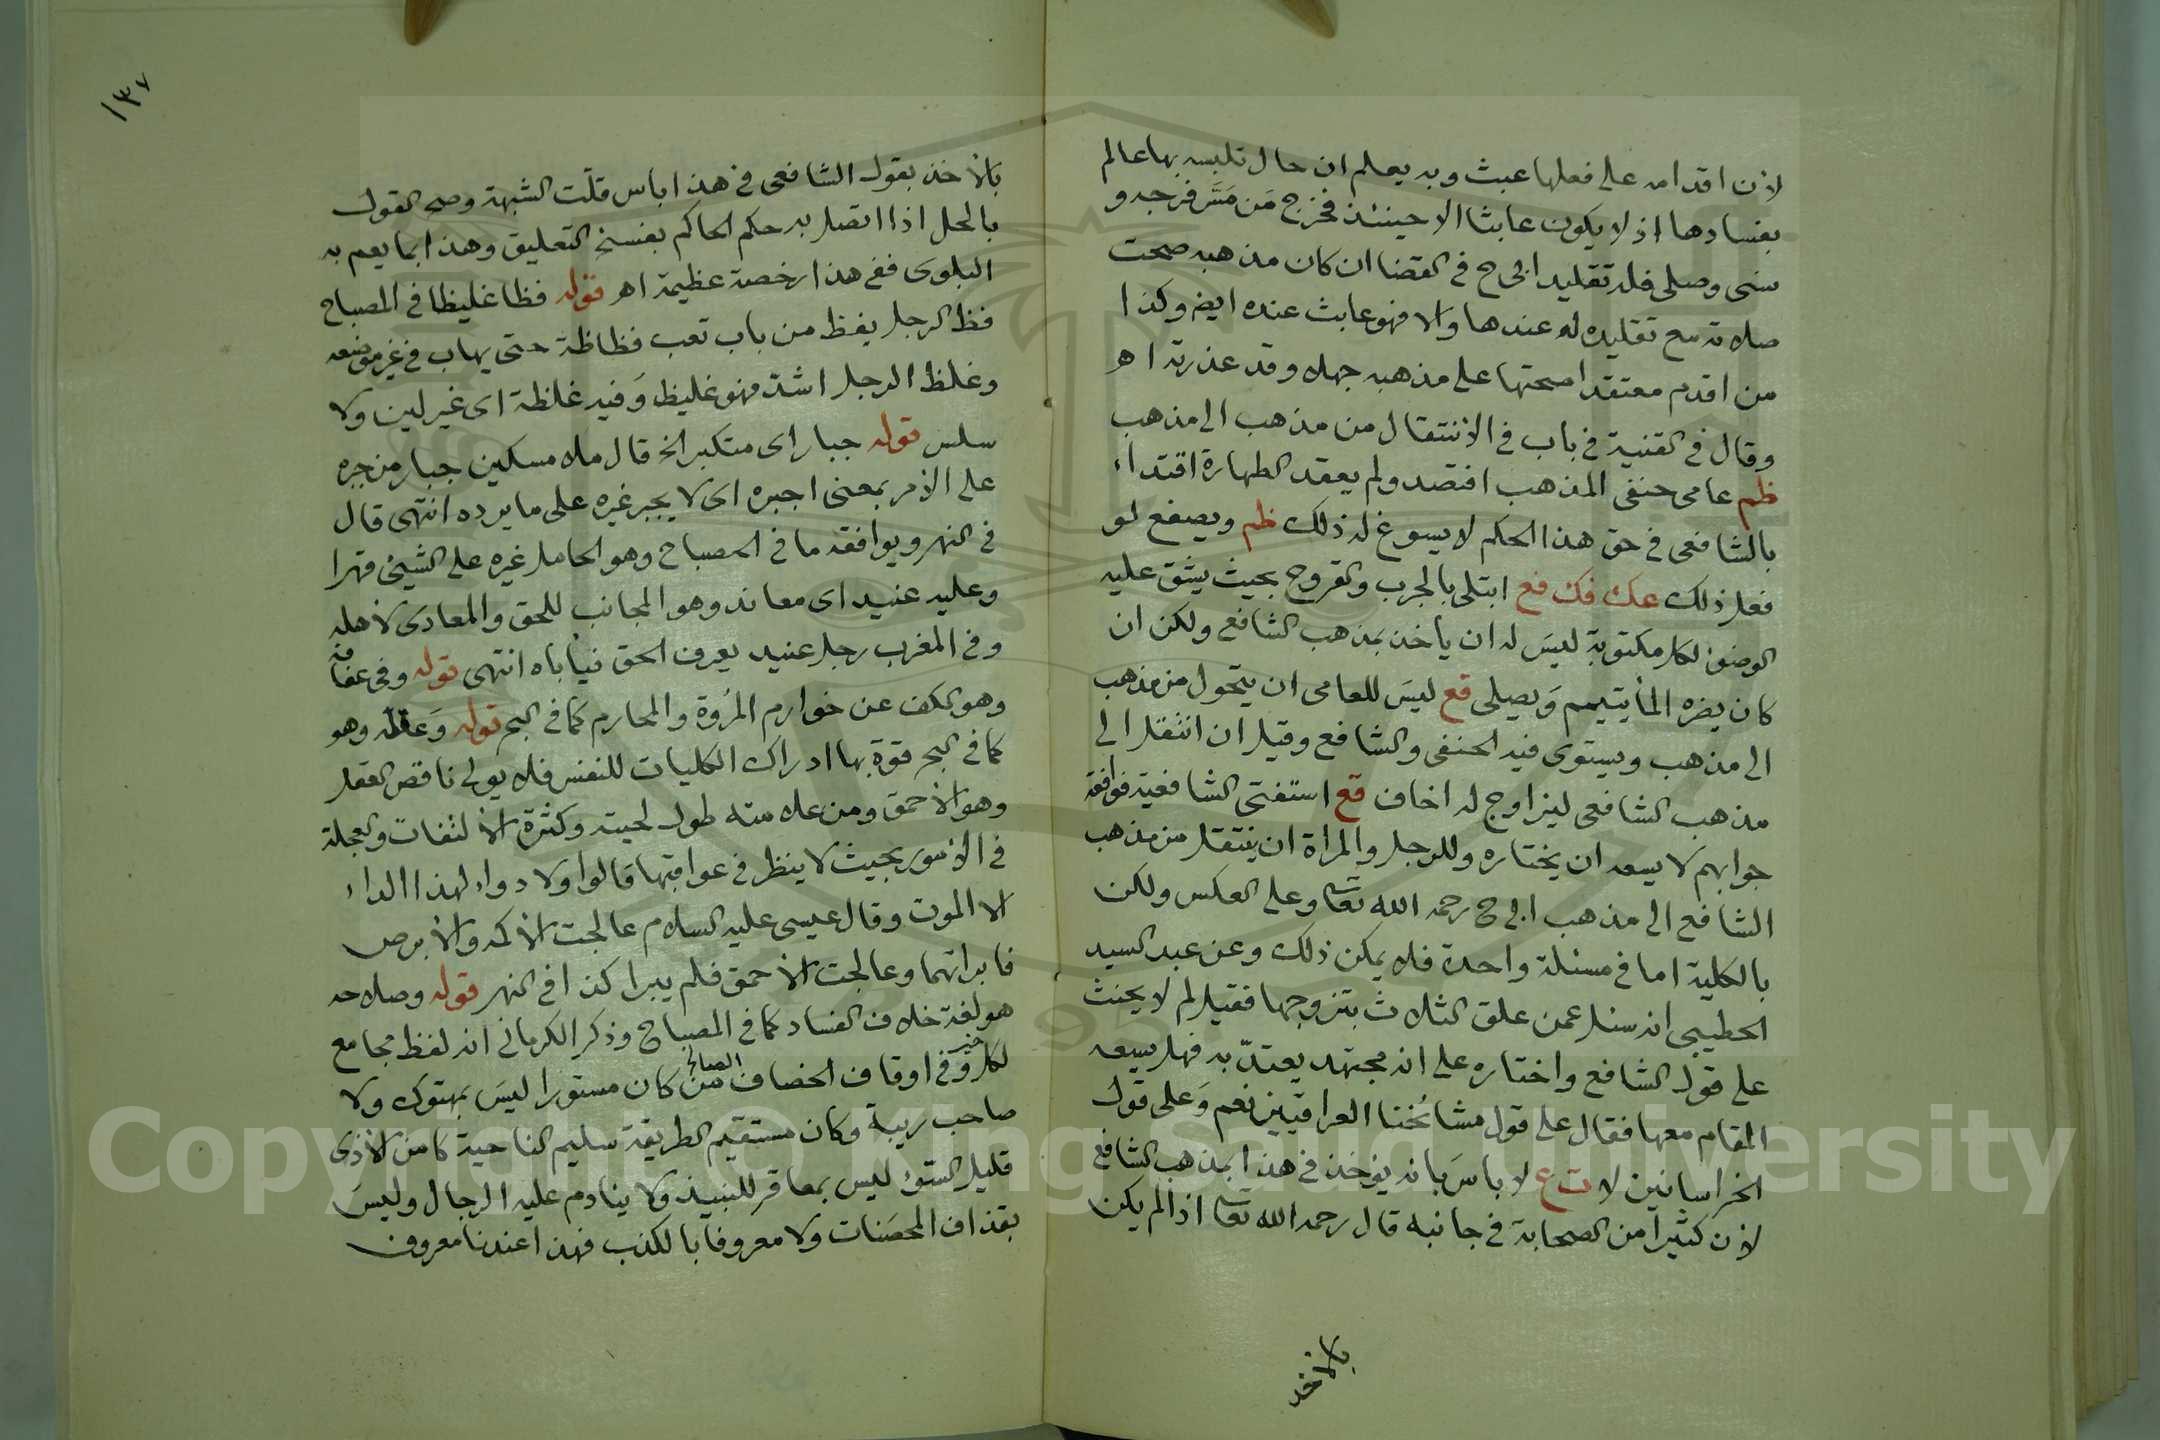 لان اقدامه على فعلها عبث وبه يعلم ان حال تلبسه بها عالم
بفسادها اذ لا يكون عابثا الا حينئذ فخرج مَن مَسَّ فرجه و
نسى وصلى فله تقليد ابى ح فى القضا ان كان مذهبه صحت
صلاته مع تقليده له عندها والا فهو عابث عنده ايض وكذا
من اقدم معتقدا صحتها على مذهبه جهله وقد عذر به اهـ
وقال فى القنية فى باب فى الانتقال من مذهب الى مذهب
ظم عامى حنفى المذهب افتصد ولم يعقد الطهارة اقتداء
بالشافعى فى حق هذا الحكم لا يسوغ له ذلك ظم ويصفع لو
فعل ذلك عك فك فع ابتلى بالجرب والقروح بحيث يشق عليه
الوضوء لكل مكتوبة ليس له ان ياخذ بمذهب الشافعى ولكن ان
كان يضره الماء يتيمم وَيصلى قع ليسَ للعامى ان يتحول من مذهب
الى مذهب ويستوى فيه الحنفى والشافعى وقيل ان انتقل الى
مذهب الشافعى ليزاوج له اخاف قع استفتى الشافعية فوافقه
جوابهم لا يسعه ان يختاره وللرجل والمراة ان ينتقل من مذهب
الشافعى الى مذهب ابى ح رحمه الله تعالى وعلى العكس ولكن
بالكلية اما فى مسئلة واحدة فلا يمكن ذلك وعن عبد السيد
الخطيبى انه سئل عمن علق الثلاث بتزوجها فقيل لم لا يحنث
على قول الشافعى واختاره على انه مجتهد يعتدّ به فهل يسعه
المقام معها فقال على قول مشائخنا العراقيين نعم وَعلى قول
الخراسانين لا ت ع لا باسَ بانه يوخذ فى هذا بمذهب الشافعى
لان كثيرا من الصحابة فى جانبه قال رحمه الله تعالى اذا لم يكن
بالاخذ
١٣٧
بالاخذ بقول الشافعى فى هذا باس قلّت الشبهة وصح القول
بالحل اذا اتصل به حكم الحاكم بفسخ التعليق وهذا بما يعم به
البلوى ففى هذا رخصة عظيمة اهـ قوله فظا غليظا فى المصباح
فظ الرجل يفظ من باب تعب فظاظة حتى يهاب فى غير موضعه
وغلظ الرجل اشتد فهو غليظ وَفيه غلظة اى غير لين ولا
سلس قوله جبار اى متكبر الخ قال ملا مسكين جبار من جبره
على الامر بمعنى اجبره اى لا يجبر غيره على ما يرده انتهى قال
فى النهر ويوافقه ما فى المصباح وهو الحامل غيره على الشيئ قهرا
وعليه عنيد اى معاند وهو المجانب للحق والمعادى لاهله
وفى المغرب رجل عنيد يعرف الحق فيأباه انتهى قوله وفى عفافه
وهو الكف عن خوارم المرُوة والمحارم كما فى البحر قوله وَعقله وهو
كما فى البحر قوة بها ادراك الكليات للنفس فلا يولى ناقص العقل
وهو الاحمق ومن علامته طول لحيته وكثرة الالتفات والعجلة
فى الامور بحيث لا ينظر فى عواقبها قالوا ولا دواء لهذا الداء
الا الموت وقال عيسى عليه السلام عالجت الاكمه والابرص
فابراتهما وعالجت الاحمق فلم يبرا كذا فى النهر قوله وصلاحه
هو لغة خلاف الفساد كما فى المصباح وذكر الكرمانى انه لفظ مجامع
لكل خير وفى اوقاف الخصاف الصالح من كان مستورا ليسَ بمهتوك ولا
صاحب ريبة وكان مستقيم الطريقة سليم الناحية كامن الاذى
قليل السوء ليس بمعاقر للنبيذ ولا ينادم عليه الرجال وليسَ
بقذاف المحصَنات ولا معروفا بالكذب فهذا عندنا معروف
Copyright © King Saud University